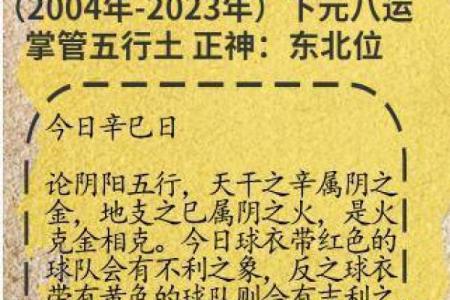 （2004年-2023年）下元八运
掌管五行土 正神：东北位
今日辛巳日
论阴阳五行，天干之辛属阴之
金，地支之巳属阴之火，是火
克金相克。今日球衣带红色的
球队会有不利之象，反之球衣
带有黄色的球队则会有吉利之